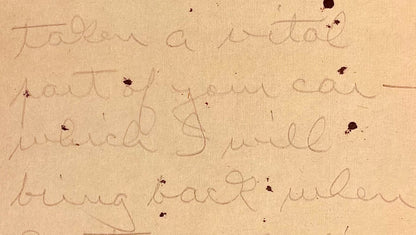 taken a vital
part of your car —
which I will
bring back when